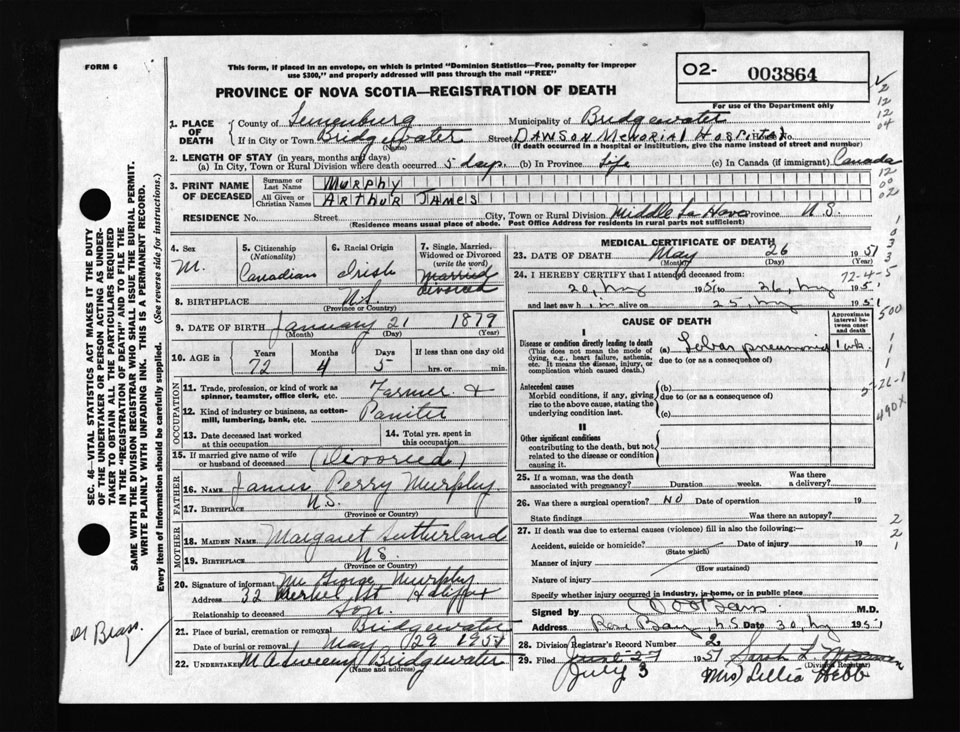 FORM 6
This form, if placed in an envelope, on which is printed "Dominion Statistics—Free, penalty for improper
use $300," and properly addressed will pass through the mail "FREE"
PROVINCE OF NOVA SCOTIA—REGISTRATION OF DEATH
O2- 003864
For use of the Department only
1. PLACE OF DEATH
County of Lunenburg Municipality of Bridgewater
If in City or Town Bridgewater Street DAWSON MEMORIAL HOSPITAL No.
(Name) (If death occurred in a hospital or institution, give the name instead of street and number)
2. LENGTH OF STAY (in years, months and days)
(a) In City, Town or Rural Division where death occurred 5 days (b) In Province Life (c) In Canada (if immigrant) Canada
3. PRINT NAME OF DECEASED
Surname or Last Name MURPHY
All Given or Christian Names ARTHUR JAMES
RESIDENCE No. Street City, Town or Rural Division Middle La Have Province N.S.
(Residence means usual place of abode. Post Office Address for residents in rural parts not sufficient)
4. Sex
M.
5. Citizenship
(Nationality)
Canadian
6. Racial Origin
Irish
7. Single, Married, Widowed or Divorced
(write the word)
Married
divorced
8. BIRTHPLACE N.S.
(Province or Country)
9. DATE OF BIRTH January 21 1879
(Month) (Day) (Year)
10. AGE in Years 72 Months 4 Days 5 If less than one day old
hrs. or min.
OCCUPATION
11. Trade, profession, or kind of work as
spinner, teamster, office clerk, etc. Farmer +
12. Kind of industry or business, as cotton-
mill, lumbering, bank, etc.
13. Date deceased last worked
at this occupation
14. Total yrs. spent in
this occupation
15. If married give name of wife
or husband of deceased (Divorced)
FATHER
16. NAME James Perry Murphy.
17. BIRTHPLACE N.S.
(Province or Country)
MOTHER
18. MAIDEN NAME Margaret Sutherland
19. BIRTHPLACE N.S.
(Province or Country)
20. Signature of informant Mr George Murphy.
Address 32 St Halifax
Relationship to deceased Son.
21. Place of burial, cremation or removal Bridgewater
Date of burial or removal May 29 1951
22. UNDERTAKER M A Sweeny Bridgewater
(Name and address)
MEDICAL CERTIFICATE OF DEATH
23. DATE OF DEATH May 26 1951
(Month) (Day)
24. I HEREBY CERTIFY that I attended deceased from:
20, My 1951 to 26, My 1951
and last saw him alive on 25, My 1951
CAUSE OF DEATH
Approximate interval between onset and death
I
Disease or condition directly leading to death
(This does not mean the mode of
dying, e.g., heart failure, asthenia,
etc. It means the disease, injury, or
complication which caused death.)
(a) Lobar pneumonia 1 wk.
due to (or as a consequence of)
Antecedent causes
Morbid conditions, if any, giving
rise to the above cause, stating the
underlying condition last.
(b)
due to (or as a consequence of)
(c)
II
Other significant conditions
contributing to the death, but not
related to the disease or condition
causing it.
25. If a woman, was the death
associated with pregnancy? Duration weeks. Was there
a delivery?
26. Was there a surgical operation? NO Date of operation 19
State findings Was there an autopsy?
27. If death was due to external causes (violence) fill in also the following:—
Accident, suicide or homicide? Date of injury 19
(State which)
Manner of injury
(How sustained)
Nature of injury
Specify whether injury occurred in industry, in home, or in public place
Signed by M.D.
Address Rose Bay, N.S Date 30, My 1951
28. Division Registrar's Record Number 2
29. Filed June 27 1951 Sarah L.
(Division Registrar)
July 3 Mrs Lillia Hebb
SEC. 46—VITAL STATISTICS ACT MAKES IT THE DUTY
OF THE UNDERTAKER OR PERSON ACTING AS UNDER-
TAKER TO OBTAIN ALL THE PARTICULARS REQUIRED
IN THE "REGISTRATION OF DEATH" AND TO FILE THE
SAME WITH THE DIVISION REGISTRAR WHO SHALL ISSUE THE BURIAL PERMIT.
WRITE PLAINLY WITH UNFADING INK. THIS IS A PERMANENT RECORD.
Every item of information should be carefully supplied. (See reverse side for instructions.)
2
12
12
04
12
00
02
1
3
3
72-4-5
500
1
1
1
5-26-1
490X
2
2
1